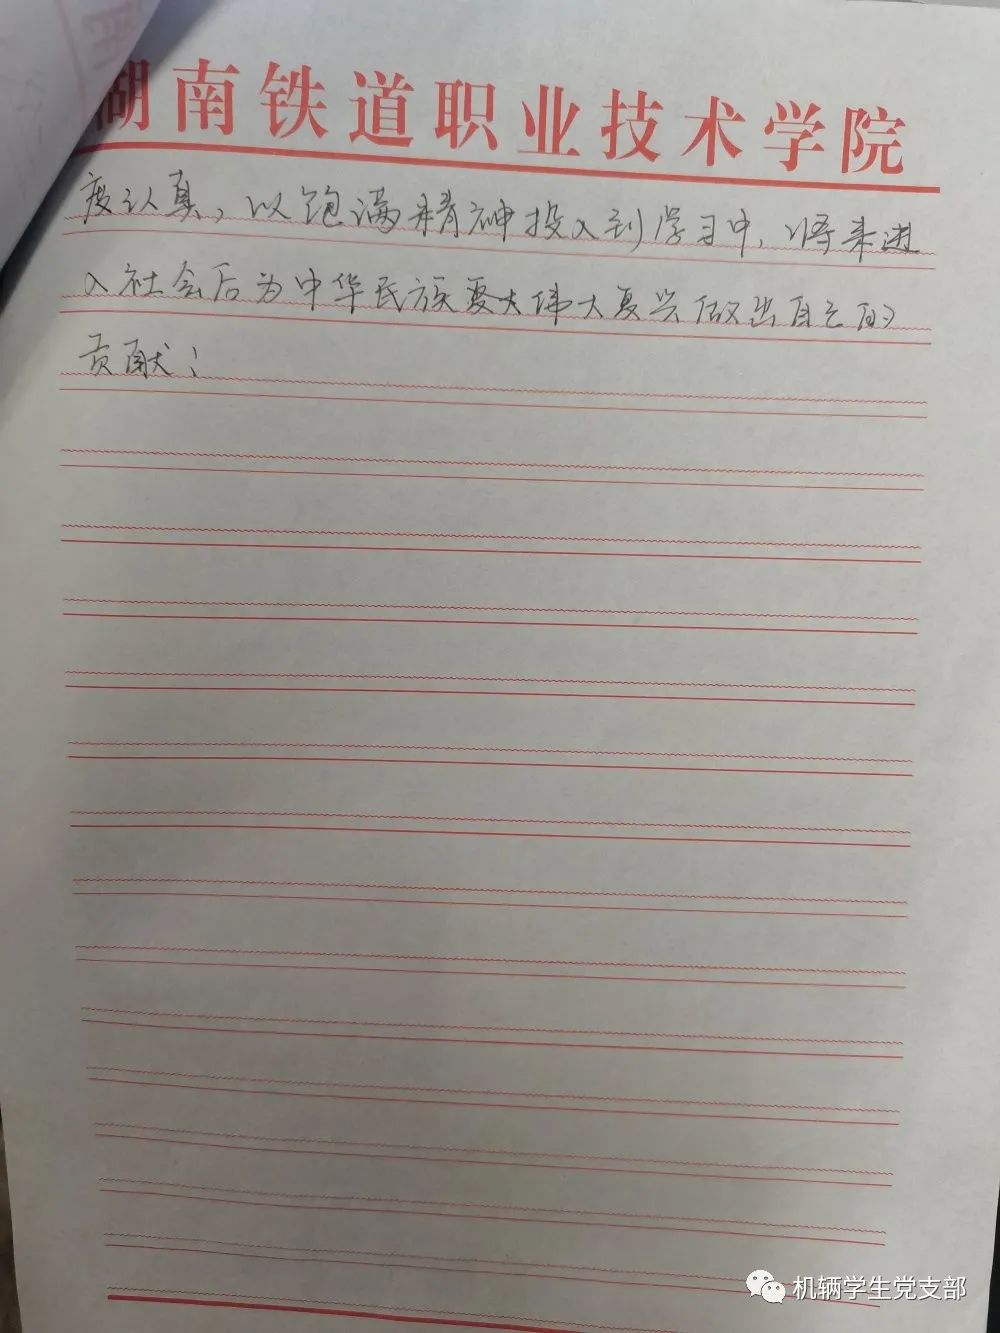 湖南铁道职业技术学院
度认真，以饱满精神投入到学习中，将来进
入社会后为中华民族夏大伟大复兴做出自己的
贡献；
机辆学生党支部